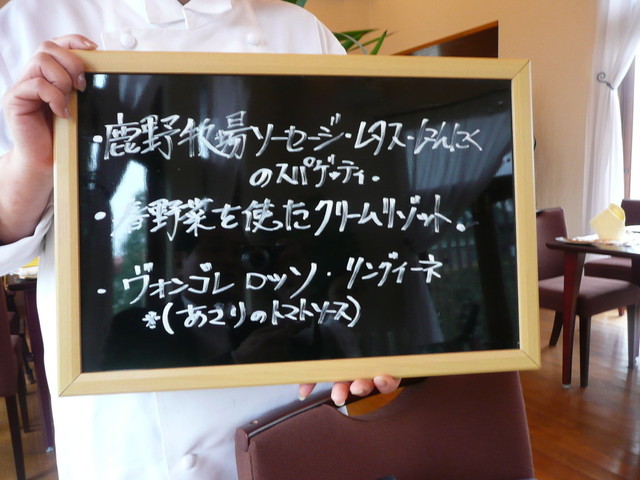 ・鹿野牧場ソーセージ・レタス・にんにく
のスパゲッティ.
・春野菜を使ったクリームリゾット。
・ヴォンゴレ ロッソ・リングイーネ
※(あさりのトマトソース)